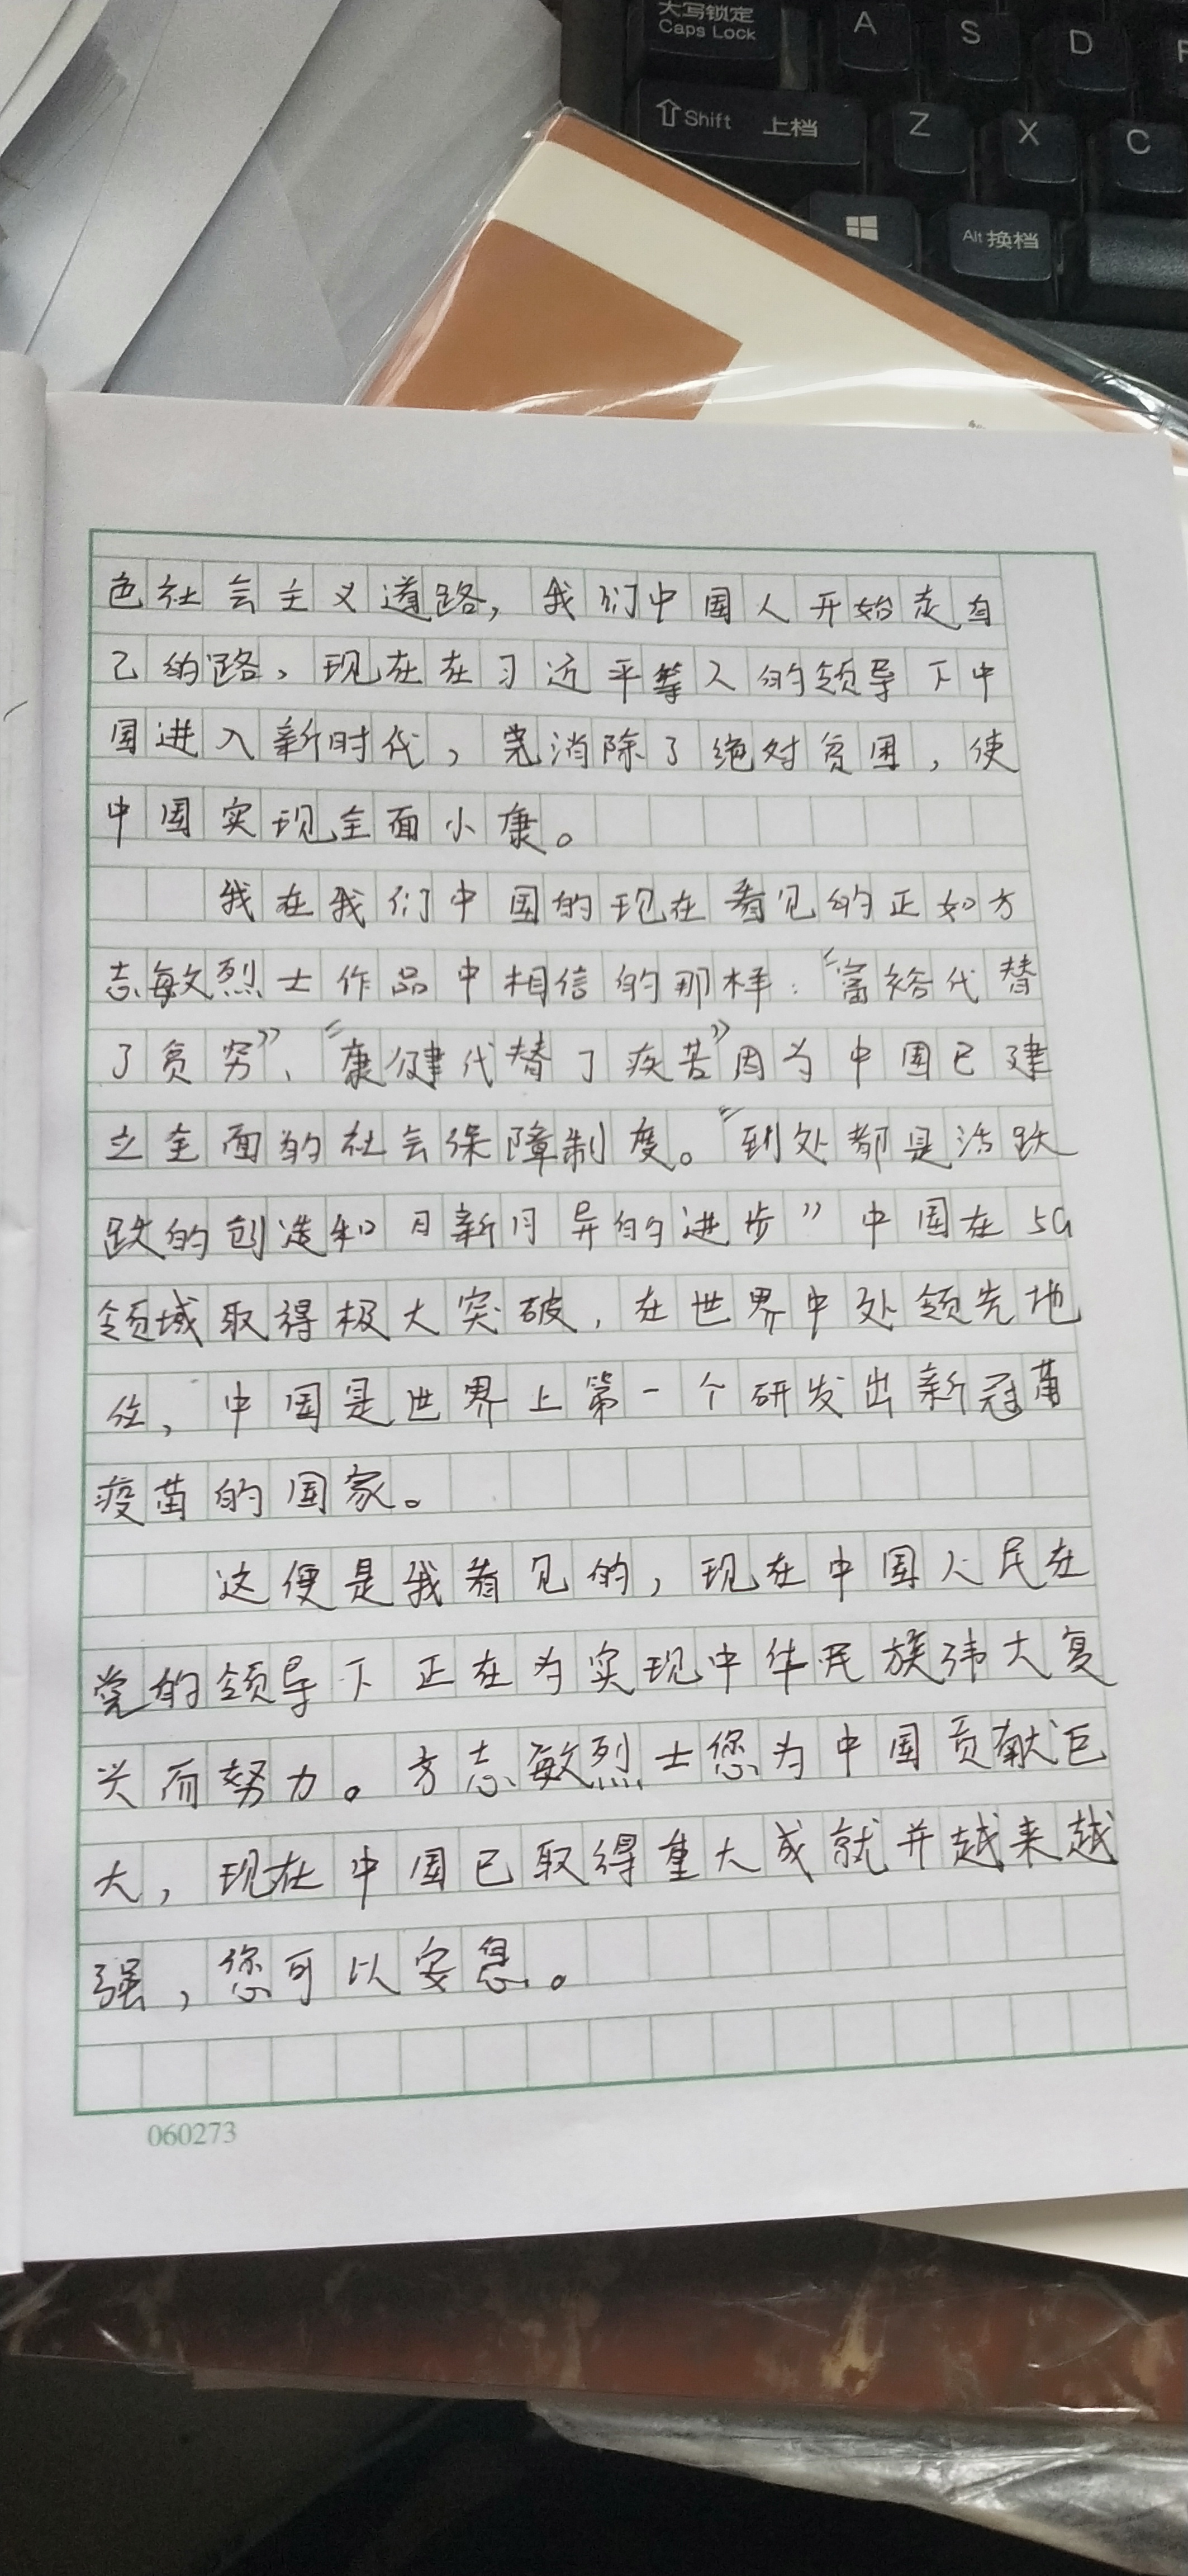 大写锁定
Caps Lock
A
S
D
F
Shift 上档
Z
X
C
Alt 换档
色社会主义道路，我们中国人开始走自
己的路，现在在习近平等人的领导下中
国进入新时代，党消除了绝对贫困，使
中国实现全面小康。
我在我们中国的现在看见的正如方
志敏烈士作品中相信的那样：“富裕代替
了贫穷”、“康健代替了疾苦”因为中国已建
立全面的社会保障制度。“到处都是活跃
跃的创造和日新月异的进步”中国在5G
领域取得极大突破，在世界中处领先地
位，中国是世界上第一个研发出新冠
疫苗的国家。
这便是我看见的，现在中国人民在
党的领导下正在为实现中华民族伟大复
兴而努力。方志敏烈士您为中国贡献巨
大，现在中国已取得重大成就并越来越
强，您可以安息。
060273